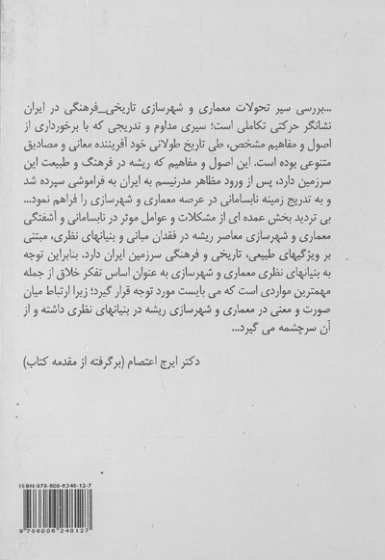 ...بررسی سیر تحولات معماری و شهرسازی تاریخی_فرهنگی در ایران
نشانگر حرکتی تکاملی است؛ سیری مداوم و تدریجی که با برخورداری از
اصول و مفاهیم مشخص، طی تاریخ طولانی خود آفریننده معانی و مصادیق
متنوعی بوده است. این اصول و مفاهیم که ریشه در فرهنگ و طبیعت این
سرزمین دارد، پس از ورود مظاهر مدرنیسم به ایران به فراموشی سپرده شد
و به تدریج زمینه نابسامانی در عرصه معماری و شهرسازی را فراهم نمود...
بی تردید بخش عمده ای از مشکلات و عوامل موثر در نابسامانی و آشفتگی
معماری و شهرسازی معاصر ریشه در فقدان مبانی و بنیانهای نظری، مبتنی
بر ویژگیهای طبیعی، تاریخی و فرهنگی سرزمین ایران دارد. بنابراین توجه
به بنیانهای نظری معماری و شهرسازی به عنوان اساس تفکر خلاق از جمله
مهمترین مواردی است که می بایست مورد توجه قرار گیرد؛ زیرا ارتباط میان
صورت و معنی در معماری و شهرسازی ریشه در بنیانهای نظری داشته و از
آن سرچشمه می گیرد...
دکتر ایرج اعتصام (برگرفته از مقدمه کتاب)
ISBN:978-600-6248-12-7
9786006248127